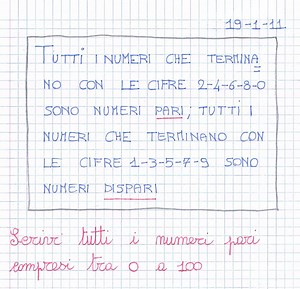 19-1-11
TUTTI I NUMERI CHE TERMINA
NO CON LE CIFRE 2-4-6-8-0
SONO NUMERI PARI; TUTTI I
NUMERI CHE TERMINANO CON
LE CIFRE 1-3-5-7-9 SONO
NUMERI DISPARI
Scrivi tutti i numeri pari
compresi tra 0 a 100